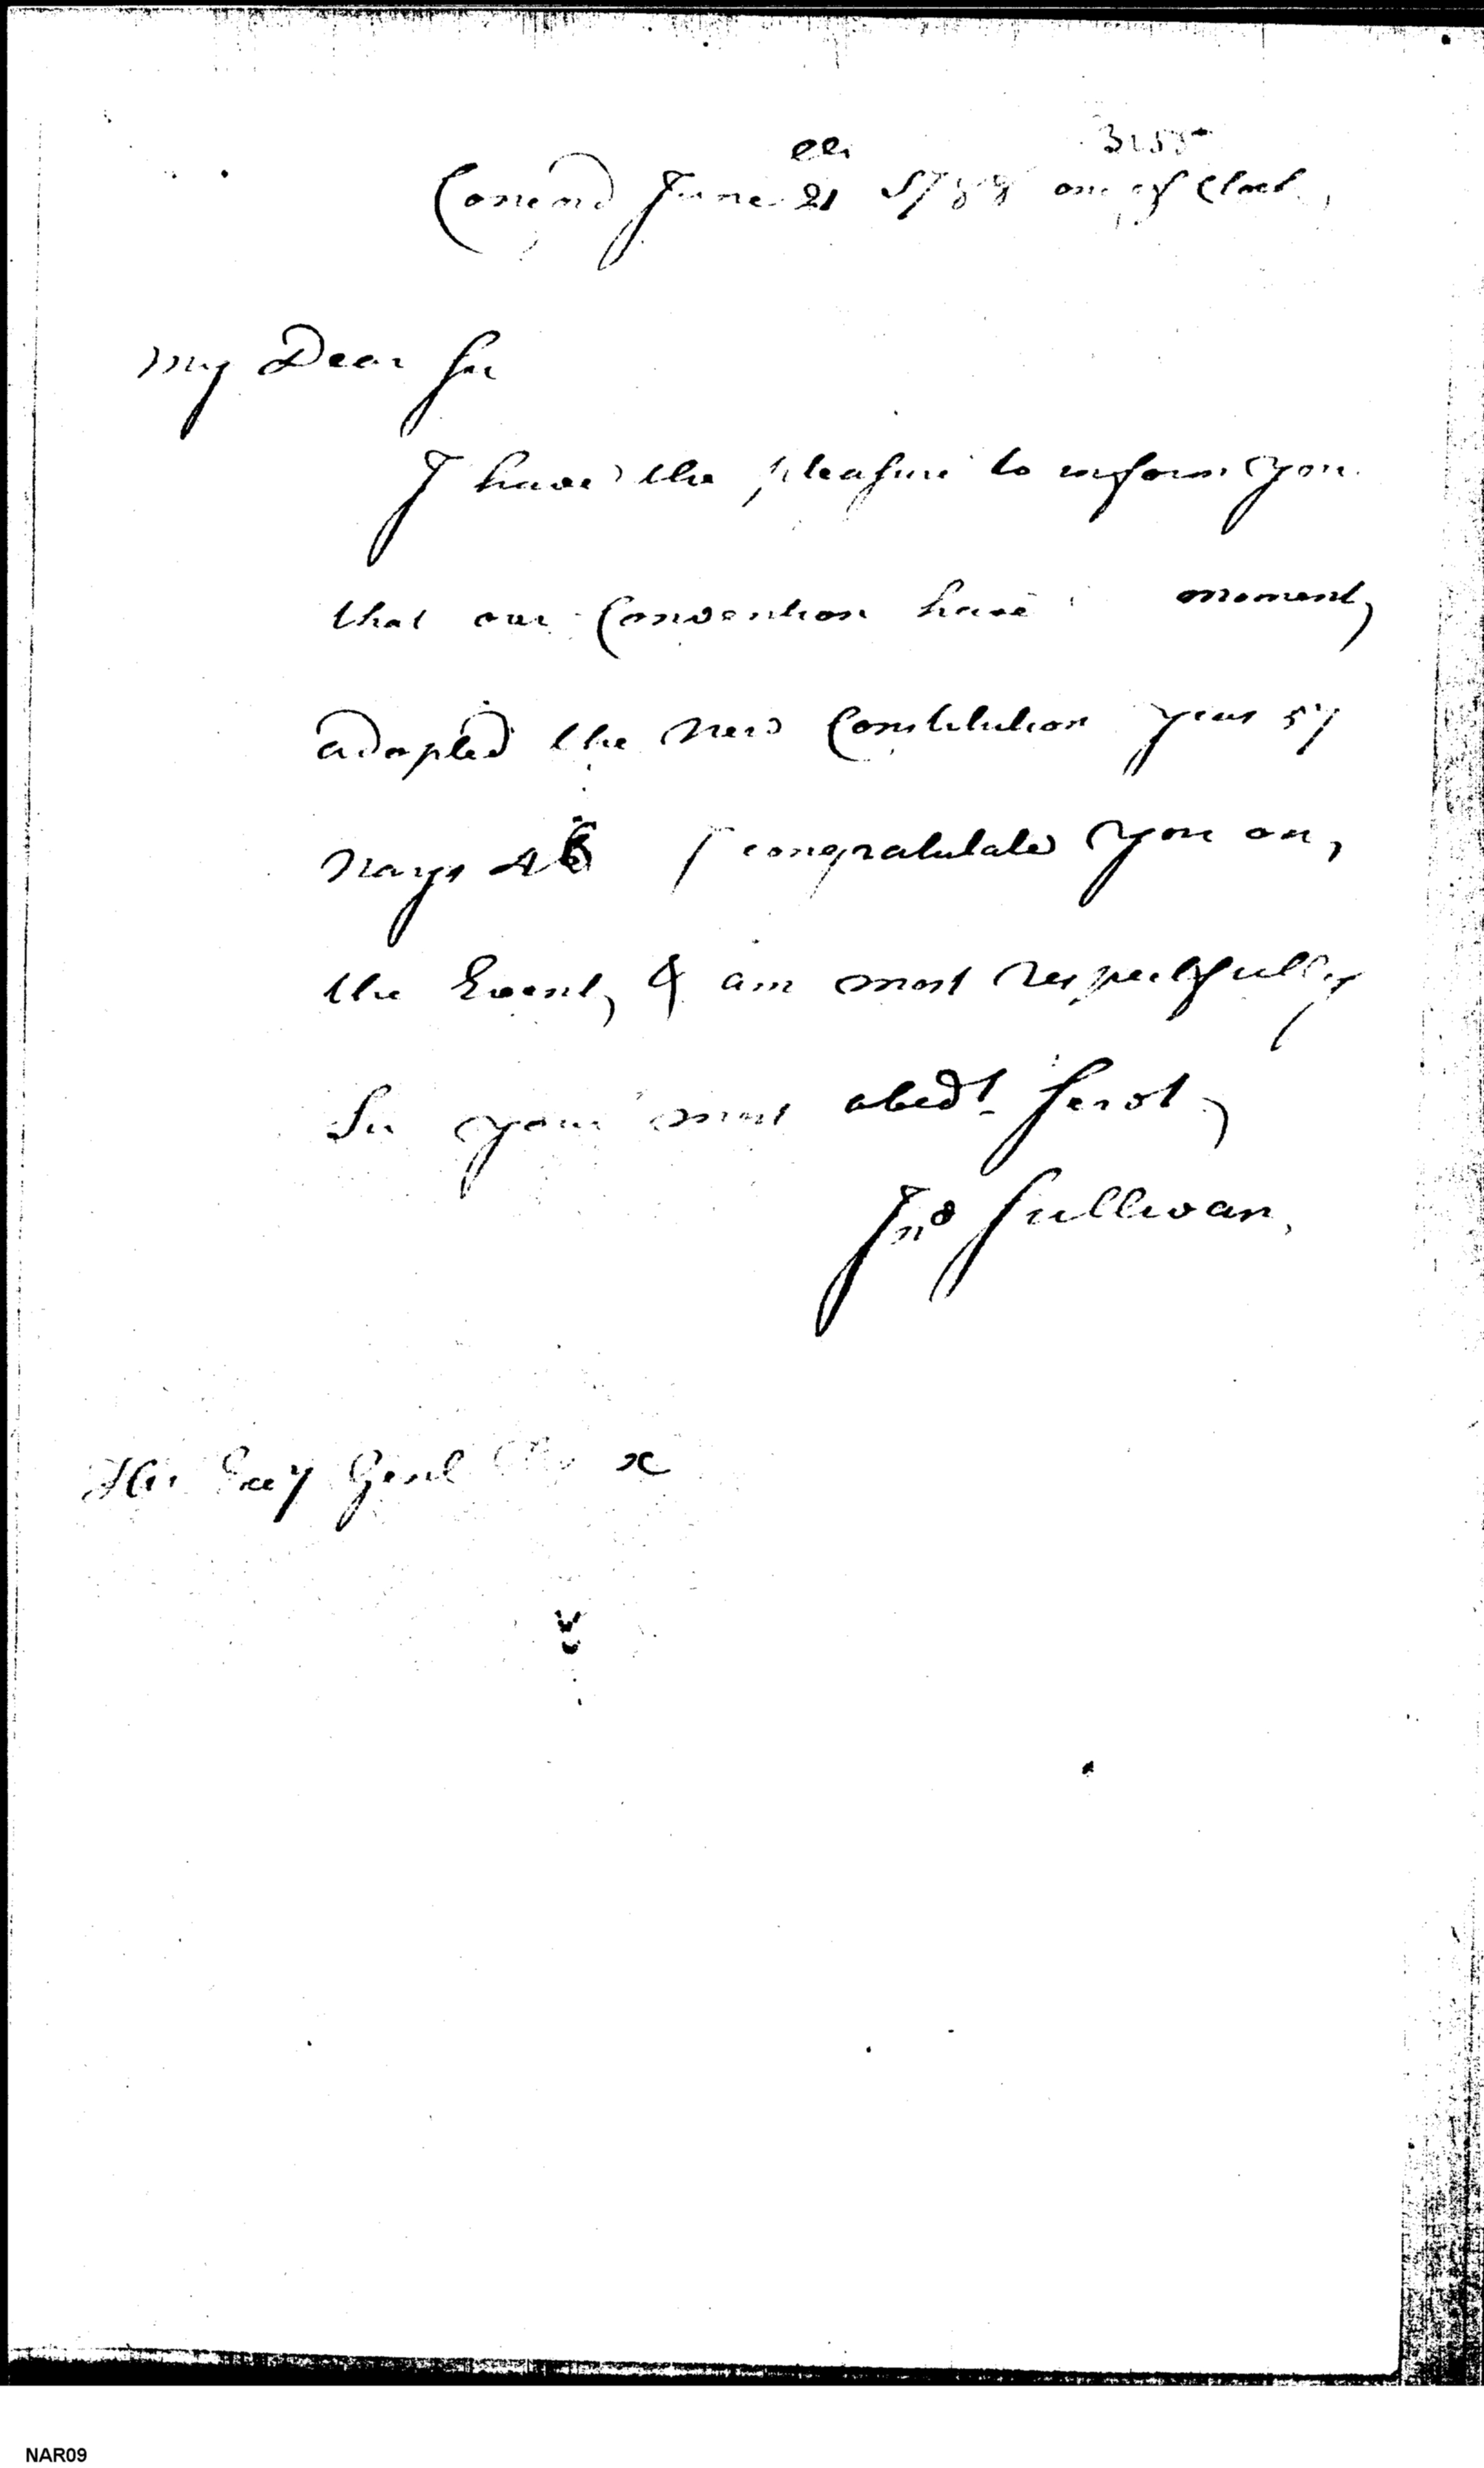 3155
Concord June 21 1788 one of Clock,
My Dear Sir
I have the pleasure to inform you
that our Convention have moment,
adopted the New Constitution Yeas 57
Nays 46 I congratulate you on,
the Event, & am most respectfully
Sir your most obedt. Servt,
Jno Sullivan,
His Exy Genl
NAR09